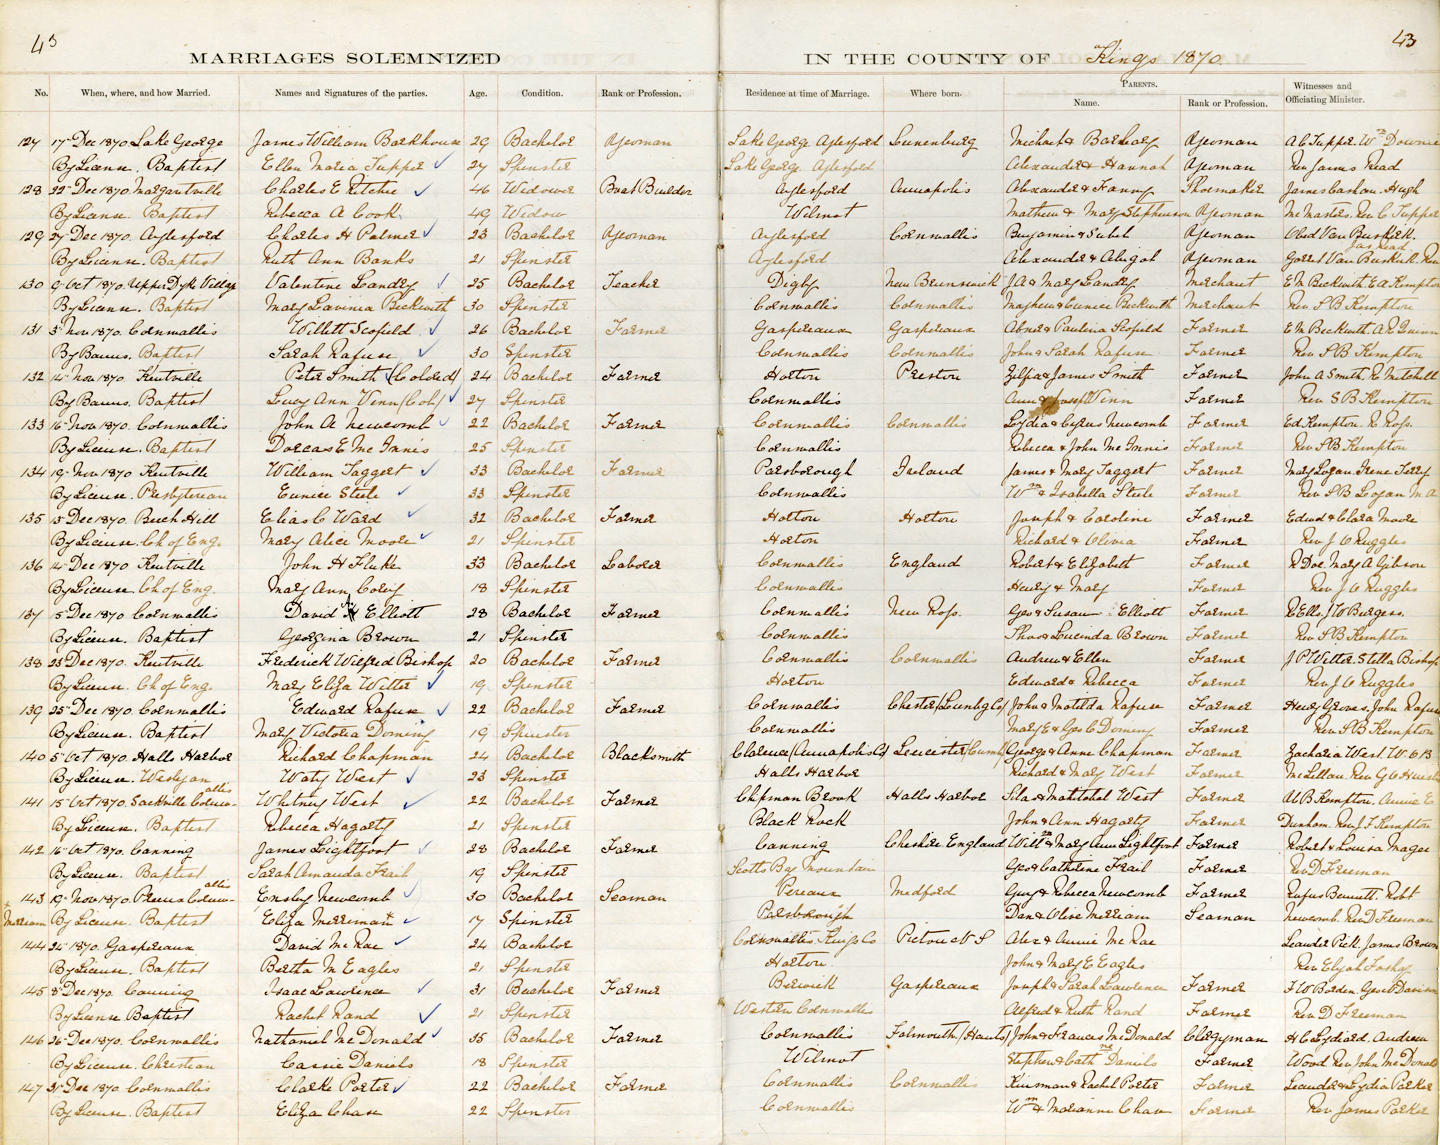 43 43
MARRIAGES SOLEMNIZED IN THE COUNTY OF Kings 1870.
No. When, where, and how Married. Names and Signatures of the parties. Age. Condition. Rank or Profession. Residence at time of Marriage. Where born. PARENTS. Name. Rank or Profession. Witnesses and Officiating Minister.
127 17th Dec 1870 Lake George James William Barkhouse 29 Bachelor Yeoman Lake George Aylesford Lunenburg Michael & Barbary Yeoman A C Tupper. Wm Downie
By License. Baptist Ellen Maria Tupper 27 Spinster Lake George Aylesford Alexander & Hannah Yeoman Rev James Read
128 22nd Dec 1870 Margaretville Charles E Ritchie 46 Widower Boat Builder Aylesford Annapolis Alexander & Fanny Shoemaker James Hugh
By License. Baptist Rebecca A Cook 49 Widow Wilmot Mathew & Mary Stephenson Yeoman McMasters. Rev C Tupper
129 27th Dec 1870. Aylesford Charles H Palmer 23 Bachelor Yeoman Aylesford Cornwallis Benjamin & Sybel Yeoman Obed Van Buskirk.
By License. Baptist Ruth Ann Banks 21 Spinster Aylesford Alexander & Abigal Yeoman Van Buskirk. Rev Jas Read
130 9th Oct 1870 Upper Dyke Village Valentine Landry 25 Bachelor Teacher Digby New Brunswick J A & Mary Landry Merchant E M Beckwith E A Kempton
By License. Baptist Mary Lavinia Beckwith 30 Spinster Cornwallis Cornwallis Mayhew & Eunice Beckwith Merchant Rev S B Kempton
131 3rd Nov 1870. Cornwallis Willett Scofield 26 Bachelor Farmer Gaspereaux Gaspereaux Abner & Paulina Scofield Farmer E M Beckwith A R Quinn
By Banns. Baptist Sarah Rafuse 30 Spinster Cornwallis Cornwallis John & Sarah Rafuse Farmer Rev S B Kempton
132 14th Nov 1870. Kentville Peter Smith (Colered) 24 Bachelor Farmer Horton Preston Zilpia & James Smith Farmer John A Smith. R Mitchell
By Banns. Baptist Lucy Ann Venn (Col) 27 Spinster Cornwallis Ann & Joseph Venn Farmer Rev S B Kempton
133 16th Nov 1870. Cornwallis John A Newcomb 22 Bachelor Farmer Cornwallis Cornwallis Lydia & Cyrus Newcomb Farmer Ed Kempton. R Ross.
By License. Baptist Dorcas E McInnis 25 Spinster Cornwallis Rebecca & John McInnis Farmer Rev S B Kempton
134 19th Nov 1870 Kentville William Taggert 33 Bachelor Farmer Parsborough Ireland James & Mary Taggert Farmer Mary Logan. Irene Terry
By License. Presbyterean Eunice Steele 33 Spinster Cornwallis Wm & Isabella Steele Farmer Rev J B Logan M A
135 13th Dec 1870. Beech Hill Elias C Ward 32 Bachelor Farmer Horton Horton Joseph & Caroline Farmer Edwd & Clara Moore
By License. Ch of Eng. Mary Alice Moore 21 Spinster Horton Richard & Olivia Farmer Rev J O Ruggles
136 14th Dec 1870 Kentville John H Fluke 33 Bachelor Laborer Cornwallis England Robert & Elizabeth Farmer R Doe. Mary A Gibson
By License. Ch of Eng. Mary Ann Corey 18 Spinster Cornwallis Henry & Mary Farmer Rev J O Ruggles
137 15th Dec 1870 Cornwallis David Elliott 28 Bachelor Farmer Cornwallis New Ross. Geo & Susan Elliott Farmer R Ells. J W Burgess.
By License. Baptist Georgina Brown 21 Spinster Cornwallis Thos & Lucinda Brown Farmer Rev S B Kempton
138 23rd Dec 1870. Kentville Frederick Wilfred Bishop 20 Bachelor Farmer Cornwallis Cornwallis Andrew & Ellen Farmer J P Witter. Stella Bishop
By License. Ch of Eng. Mary Eliza Witter 19 Spinster Horton Edward & Rebecca Farmer Rev J O Ruggles
139 25th Dec 1870. Cornwallis Edward Rafuse 22 Bachelor Farmer Cornwallis Chester (Lunbg Co) John & Matilda Rafuse Farmer Henry Groves. John Rafuse
By License. Baptist Mary Victoria Doming 19 Spinster Cornwallis Mary E & Geo C Doming Farmer Rev S B Kempton
140 5th Oct 1870. Halls Harbor Richard Chapman 24 Bachelor Blacksmith Clarence (Annapolis Co) Leicester (Cumb) George & Anne Chapman Farmer Zacharia West. W. C B
By License. Wesleyan Waty West 23 Spinster Halls Harbor Richard & Mary West Farmer McLellan. Rev G O Huestis
141 15th Oct 1870. Sackville Cornwallis Whitney West 22 Bachelor Farmer Chipman Brook Halls Harbor Silas & West Farmer Al B Kempton, Annie E
By License. Baptist Rebecca Hagarty 21 Spinster Black Rock John & Ann Hagarty Farmer Dunham. Rev J F Kempton
142 16th Oct 1870. Canning James Lightfoot 28 Bachelor Farmer Canning Cheshire England Willm & Mary Ann Lightfoot Farmer Robert & Louisa Magee
By License. Baptist Sarah Amanda Frail 19 Spinster Scotts Bay Mountain Geo & Cathrine Frail Farmer Rev D Freeman
143 19th Nov 1870. Cornwallis Ensley Newcomb 30 Bachelor Seaman Pereaux Medford Guy & Rebecca Newcomb Farmer Rufus Bennett. Robt
+ Merriam By License. Baptist Eliza Merriman + 17 Spinster Parsborough Dan & Olive Merriam Seaman Newcomb. Rev D Freeman
144 24th 1870. Gaspereaux David McRae 24 Bachelor Cornwallis Kings Co Pictou N S Alex & Annie McRae Leander Pick. James Brown
By License. Baptist Bertha M Eagles 21 Spinster Horton John & Mary E Eagles Rev Elijah Foshay
145 8th Dec 1870. Canning Isaac Lawrence 31 Bachelor Farmer Berwick Gaspereaux Joseph & Sarah Lawrence Farmer F W Borden. Geo W Davison
By License. Baptist Rachel Rand 21 Spinster Western Cornwallis Alfred & Ruth Rand Farmer Rev D Freeman
146 26th Dec 1870. Cornwallis Nathaniel McDonald 35 Bachelor Farmer Cornwallis Falmouth (Hants) John & Frances McDonald Clergyman H C Lydiard. Andrew
By License. Christian Cassie Daniels 18 Spinster Wilmot Stephen & Cathne Daniels Farmer Wood. Rev John McDonald
147 31st Dec 1870 Cornwallis Clarke Porter 22 Bachelor Farmer Cornwallis Cornwallis Kinsman & Rachel Porter Farmer Leander & Lydia Parker
By License. Baptist Eliza Chase 22 Spinster Cornwallis Wm & Marianne Chase Farmer Rev James Parker